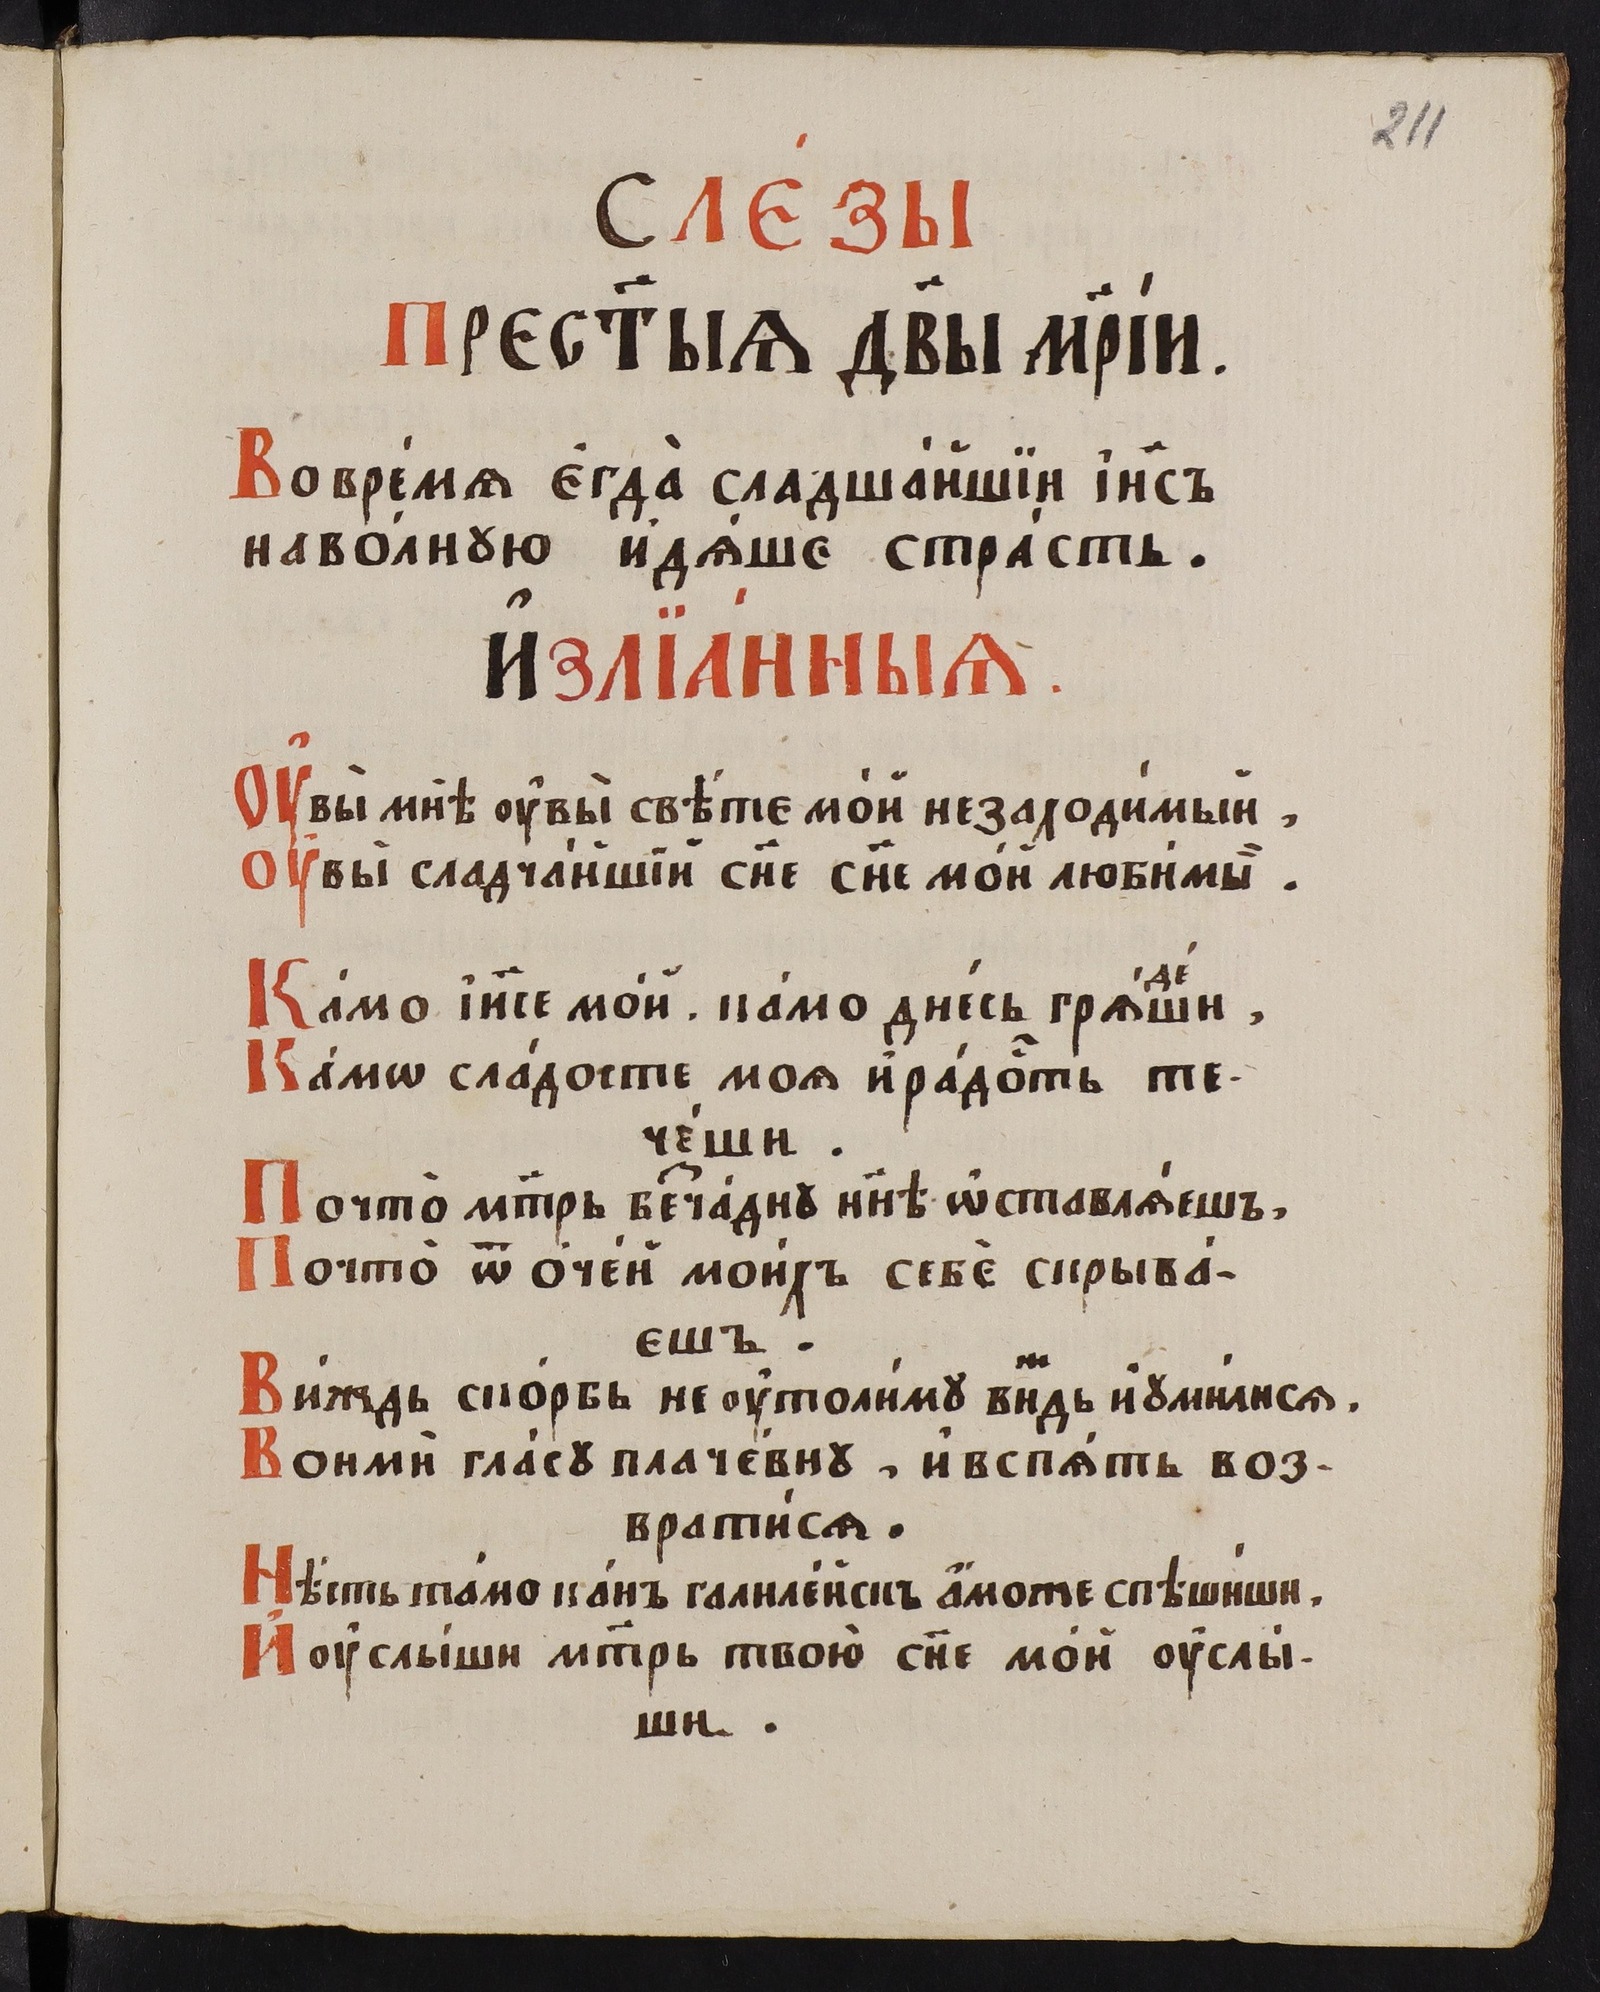 211
СЛЄ́ЗЫ
ПРЄСТ҃ЫѦ ДВ҃Ы МР҃І́И.
Вовре́мѧ є҆гда̀ сладша́йшїи і҆и҃съ
наво́лнꙋю и҆дѧ́ше стра́сть.
И҆ЗЛЇА́ННЫѦ.
Оу҆вы̀ мнѣ̀ оу҆вы̀ свѣ́те мо́й незаходи́мый,
Оу҆вы̀ сладча́йшїй сн҃е сн҃е мо́й люби́мы̆.
Ка́мо і҆и҃се мо́й. ка́мо дне́сь грѧде́ши,
Ка́мѡ сла́досте моѧ и҆ра́до҇ть те-
че́ши.
Почто̀ мт҃рь бе҇ча́днꙋ нн҃ѣ ѡ҆ставлѧ́ешъ,
Почто̀ ѿ о҆че́й мои́хъ себѐ скрыва́-
ешъ.
Ви́ждь ско́рбь не оу҆толи́мꙋ ви́ⷤдь и҆ꙋми́лисѧ.
Вонмѝ гла́сꙋ плаче́внꙋ, и҆вспѧ́ть воз-
врати́сѧ.
Нѣ́сть та́мо ка́нъ галиле́йскъ а҆́може спѣши́ши.
И҆ оу҆слы́ши мт҃рь твою̀ сн҃е мо́й оу҆слы́-
ши.